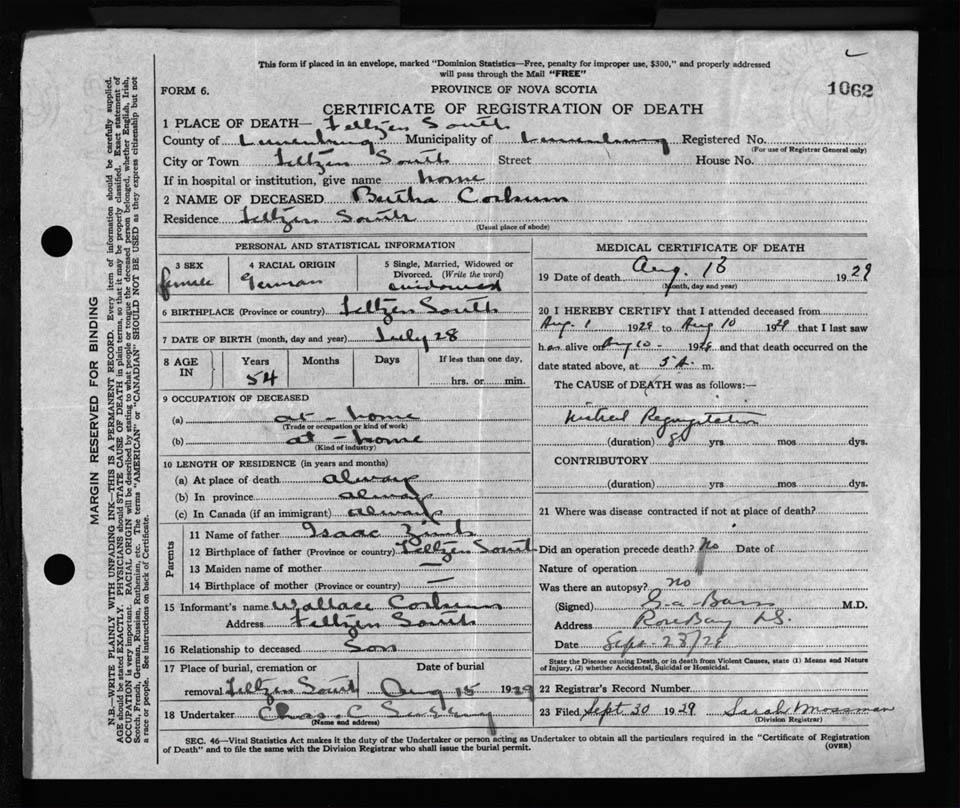 This form if placed in an envelope, marked "Dominion Statistics—Free, penalty for improper use, $300," and properly addressed
will pass through the Mail "FREE"
FORM 6.
PROVINCE OF NOVA SCOTIA
1062
CERTIFICATE OF REGISTRATION OF DEATH
1 PLACE OF DEATH— Feltzen South
County of Lunenburg Municipality of Lunenburg Registered No.
(For use of Registrar General only)
City or Town Feltzen South Street House No.
If in hospital or institution, give name home
2 NAME OF DECEASED Bertha Corkum
Residence Feltzen South
(Usual place of abode)
PERSONAL AND STATISTICAL INFORMATION
3 SEX
female
4 RACIAL ORIGIN
German
5 Single, Married, Widowed or
Divorced. (Write the word)
widowed
6 BIRTHPLACE (Province or country) Feltzen South
7 DATE OF BIRTH (month, day and year) July 28
8 AGE IN
Years
54
Months
Days
If less than one day,
hrs. or min.
9 OCCUPATION OF DECEASED
(a) at - home
(Trade or occupation or kind of work)
(b) at - home
(Kind of industry)
10 LENGTH OF RESIDENCE (in years and months)
(a) At place of death always
(b) In province always
(c) In Canada (if an immigrant) always
Parents
11 Name of father Isaac
12 Birthplace of father (Province or country) Feltzen South
13 Maiden name of mother —
14 Birthplace of mother (Province or country) —
15 Informant's name Wallace Corkum
Address Feltzen South
16 Relationship to deceased Son
17 Place of burial, cremation or Date of burial
removal Feltzen South Aug 15 1929
18 Undertaker Chas. C
(Name and address)
MEDICAL CERTIFICATE OF DEATH
19 Date of death Aug. 13 1929
(Month, day and year)
20 I HEREBY CERTIFY that I attended deceased from
Aug. 1 1929 to Aug 10 1929 that I last saw
h er alive on Aug 10 - 1929 and that death occurred on the
date stated above, at 5 A. m.
The CAUSE of DEATH was as follows:—
Mitral Regurgitation
(duration) 8 yrs mos dys.
CONTRIBUTORY
(duration) yrs mos dys.
21 Where was disease contracted if not at place of death?
Did an operation precede death? No Date of
Nature of operation
Was there an autopsy? no
(Signed) M.D.
Address Rose Bay NS.
Date Sept - 23/29
State the Disease causing Death, or in death from Violent Causes, state (1) Means and Nature
of Injury, (2) whether Accidental, Suicidal or Homicidal.
22 Registrar's Record Number
23 Filed Sept 30 1929 Sarah Mossman
(Division Registrar)
SEC. 46—Vital Statistics Act makes it the duty of the Undertaker or person acting as Undertaker to obtain all the particulars required in the "Certificate of Registration
of Death" and to file the same with the Division Registrar who shall issue the burial permit.
(OVER)
MARGIN RESERVED FOR BINDING
N.B.—WRITE PLAINLY WITH UNFADING INK—THIS IS A PERMANENT RECORD. Every item of information should be carefully supplied.
AGE should be stated EXACTLY. PHYSICIANS should STATE CAUSE OF DEATH in plain terms, so that it may be properly classified. Exact statement of
OCCUPATION is very important. RACIAL ORIGIN will be described by stating to what people or tongue the deceased person belonged, whether English, Irish,
Scotch, French, German, Russian, Ruthenian, etc. The terms "AMERICAN" or "CANADIAN" SHOULD NOT BE USED as they express citizenship but not
a race or people. See instructions on back of Certificate.